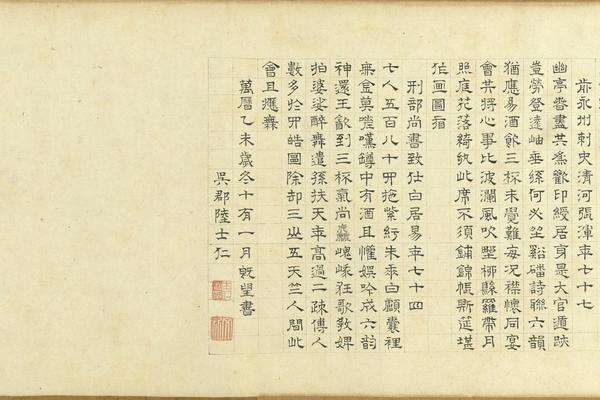 前永州刺史清河張渾年七十七
幽亭春盡共為歡印綬居身是大官遁跡
豈勞登遠岫垂絲何必坐谿磻詩聯六韻
猶應易酒飲三杯未覺難每況襟懷同宴
會共將心事比波瀾風吹野柳縣羅帶月
照庭花落綺紈此席不須鋪錦帳斯筵堪
作画圖看
刑部尚書致仕白居易年七十四
七人五百八十四拖紫紆朱垂白鬚囊裡
無金莫嗟嘆罇中有酒且懽娛吟成六韵
神還王飲到三杯氣尚麤嵬峨狂歌教婢
拍婆娑醉舞遣孫扶天年高過二疎傅人
數多於四皓圖除却三山五天竺人間此
會且應無
萬曆乙未歲冬十有一月既望書
吳郡陸士仁